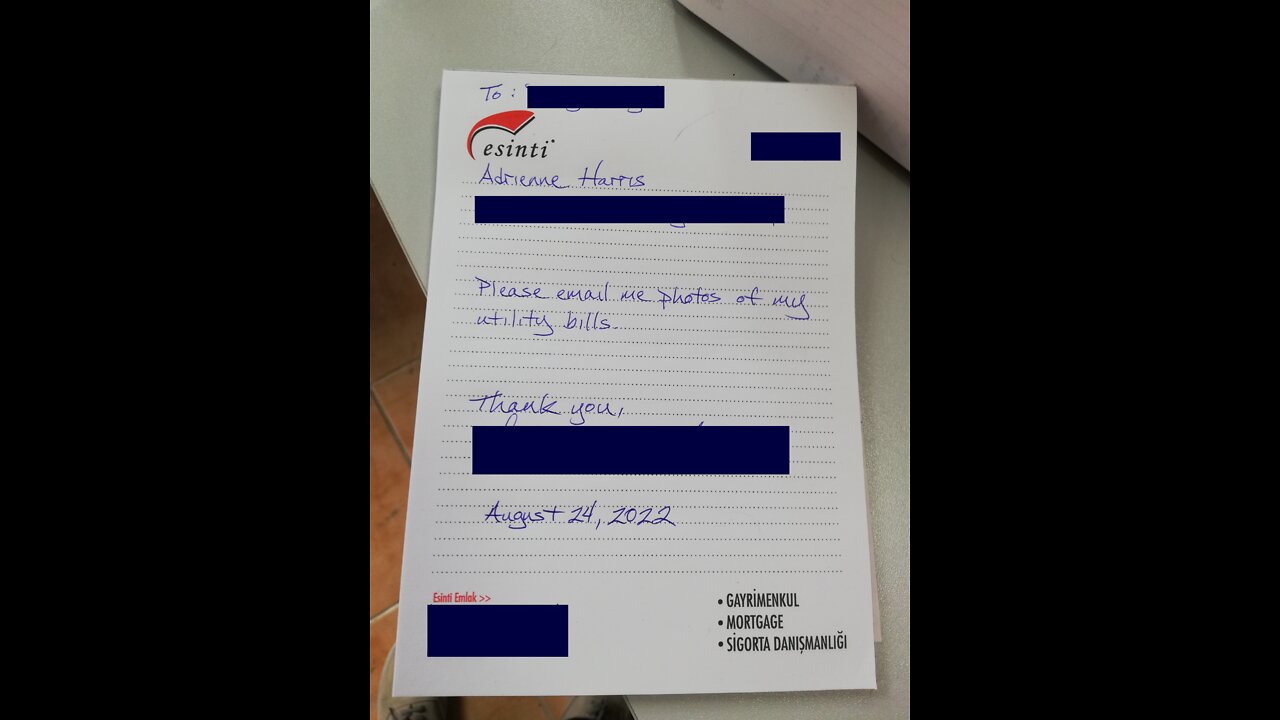 To:
esinti
Adrienne Harris
Please email me photos of my
utility bills.
Thank you,
August 24, 2022
Esinti Emlak >>
• GAYRİMENKUL
• MORTGAGE
• SİGORTA DANIŞMANLIĞI